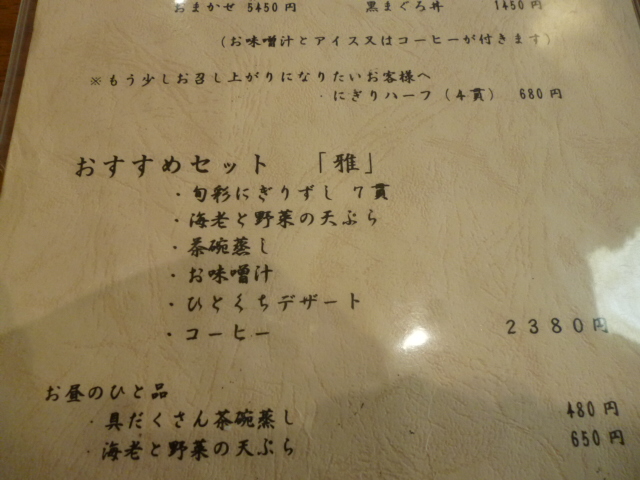 おまかせ 5450円 黒まぐろ丼 1450円
(お味噌汁とアイス又はコーヒーが付きます)
※もう少しお召し上がりになりたいお客様へ
・にぎりハーフ(4貫) 680円
おすすめセット 「雅」
・旬彩にぎりずし 7貫
・海老と野菜の天ぷら
・茶碗蒸し
・お味噌汁
・ひとくちデザート
・コーヒー 2380円
お昼のひと品
・具だくさん茶碗蒸し 480円
・海老と野菜の天ぷら 650円